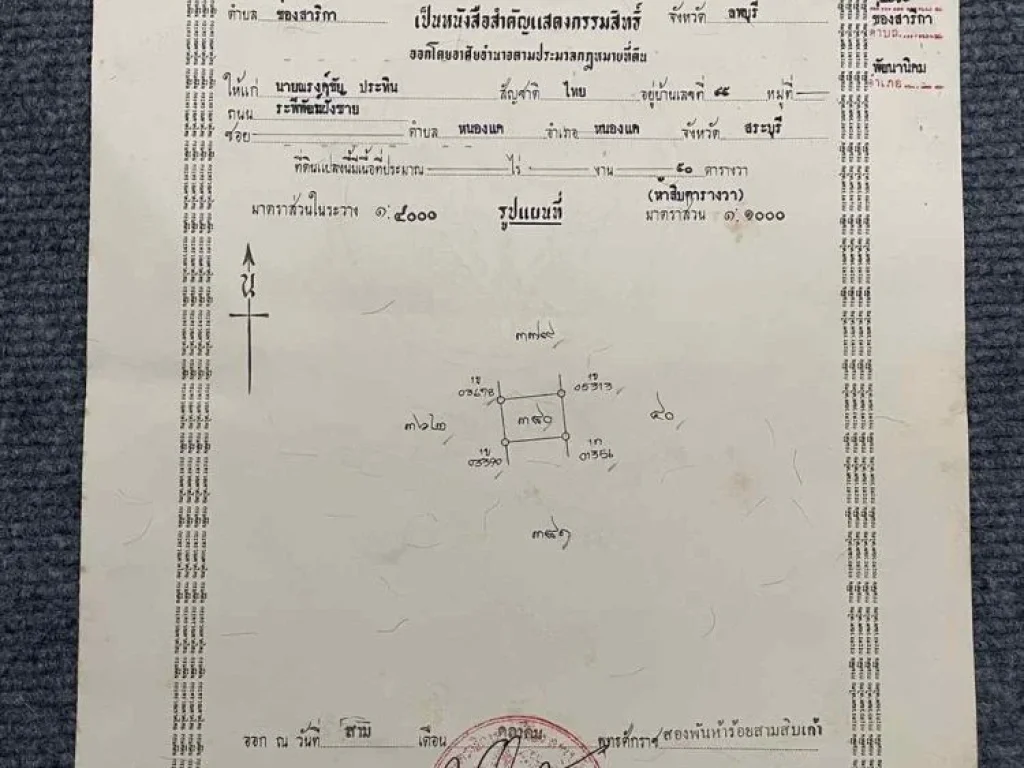 ตำบล ช่องสาริกา เป็นหนังสือสำคัญแสดงกรรมสิทธิ์ จังหวัด ลพบุรี
ช่องสาริกา
ตำบล
ออกโดยอาศัยอำนาจตามประมวลกฎหมายที่ดิน
พัฒนานิคม
อำเภอ
ให้แก่ นายณรงค์ชัย ประทิน สัญชาติ ไทย อยู่บ้านเลขที่ ๔๕ หมู่ที่
ถนน ระพีพัฒน์ฝั่งซ้าย
ซอย ตำบล หนองแค อำเภอ หนองแค จังหวัด สระบุรี
ที่ดินแปลงนี้มีเนื้อที่ประมาณ ไร่ งาน ๕๐ ตารางวา
(ห้าสิบตารางวา)
มาตราส่วนในระวาง ๑:๔๐๐๐ รูปแผนที่ มาตราส่วน ๑:๑๐๐๐
น
๓๗๙
1ข
1ข
05313
๓๖๒
๓๘๐
๔๐
1ข
03390
1ภ
01356
๓๘๑
ออก ณ วันที่ สาม เดือน ตุลาคม พุทธศักราช สองพันห้าร้อยสามสิบเก้า